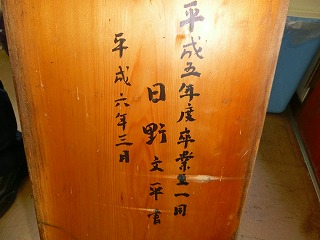 平成五年度卒業生一同
日野文平書
平成六年三月